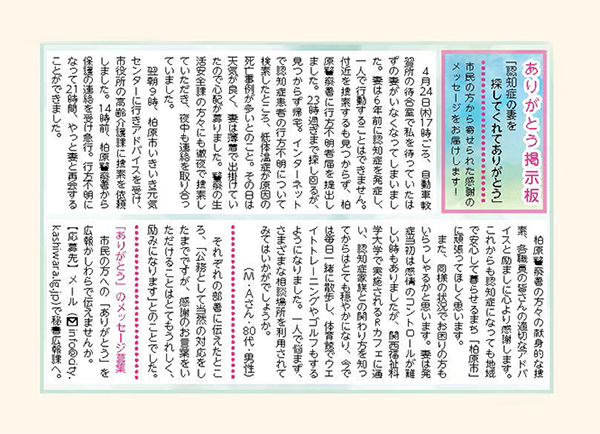 ありがとう掲示板
「認知症の妻を
探してくれてありがとう」
市民の方から寄せられた感謝の
メッセージをお届けします！
4月24日㈬17時ごろ、自動車教
習所の待合室で私を待っていたは
ずの妻がいなくなってしまいまし
た。妻は6年前に認知症を発症し、
一人で行動することはできません。
付近を捜索するも見つからず、柏
原警察署に行方不明者届を提出し
ました。23時過ぎまで探し回るが、
見つからず帰宅。インターネット
で認知症患者の行方不明について
検索したところ、低体温症が原因の
死亡事例が多いとのこと。その日は
天気が良く、妻は薄着で出掛けてい
たので心配が募りました。警察の生
活安全課の方々にも徹夜で捜索し
ていただき、夜中も連絡を取り合っ
ていました。
翌朝9時、柏原市いきいき元気
センターに行きアドバイスを受け、
市役所の高齢介護課に捜索を依頼
しました。14時前、柏原警察署から
保護の連絡を受け急行。行方不明に
なって21時間、やっと妻と再会する
ことができました。
柏原警察署の方々の献身的な捜
索、各職員の皆さんの適切なアドバ
イスと励ましに心より感謝します。
これからも認知症になっても地域
で安心して暮らせるまち「柏原市」
に頑張ってほしく思います。
また、同様の状況でお困りの方も
いらっしゃるかと思います。妻は発
症当初は感情のコントロールが難
しい時もありましたが、関西福祉科
学大学で実施されるRカフェに通
い、認知症家族との関わり方を知っ
てからはとても穏やかになり、今で
は毎日一緒に散歩し、体育館でウエ
イトトレーニングやゴルフもする
ようになりました。一人で悩まず、
さまざまな相談場所を利用されて
みてはいかがでしょうか。
(M・Aさん・80代・男性)
それぞれの部署に伝えたとこ
ろ、「公務として当然の対応をし
たまでですが、感謝のお言葉をい
ただけることはとてもうれしく、
励みになります」とのことでした。
「ありがとう」のメッセージ募集
市民の方への「ありがとう」を
広報かしわらで伝えませんか。
【応募先】メール✉info@city.
kashiwara.lg.jpで秘書広報課へ。